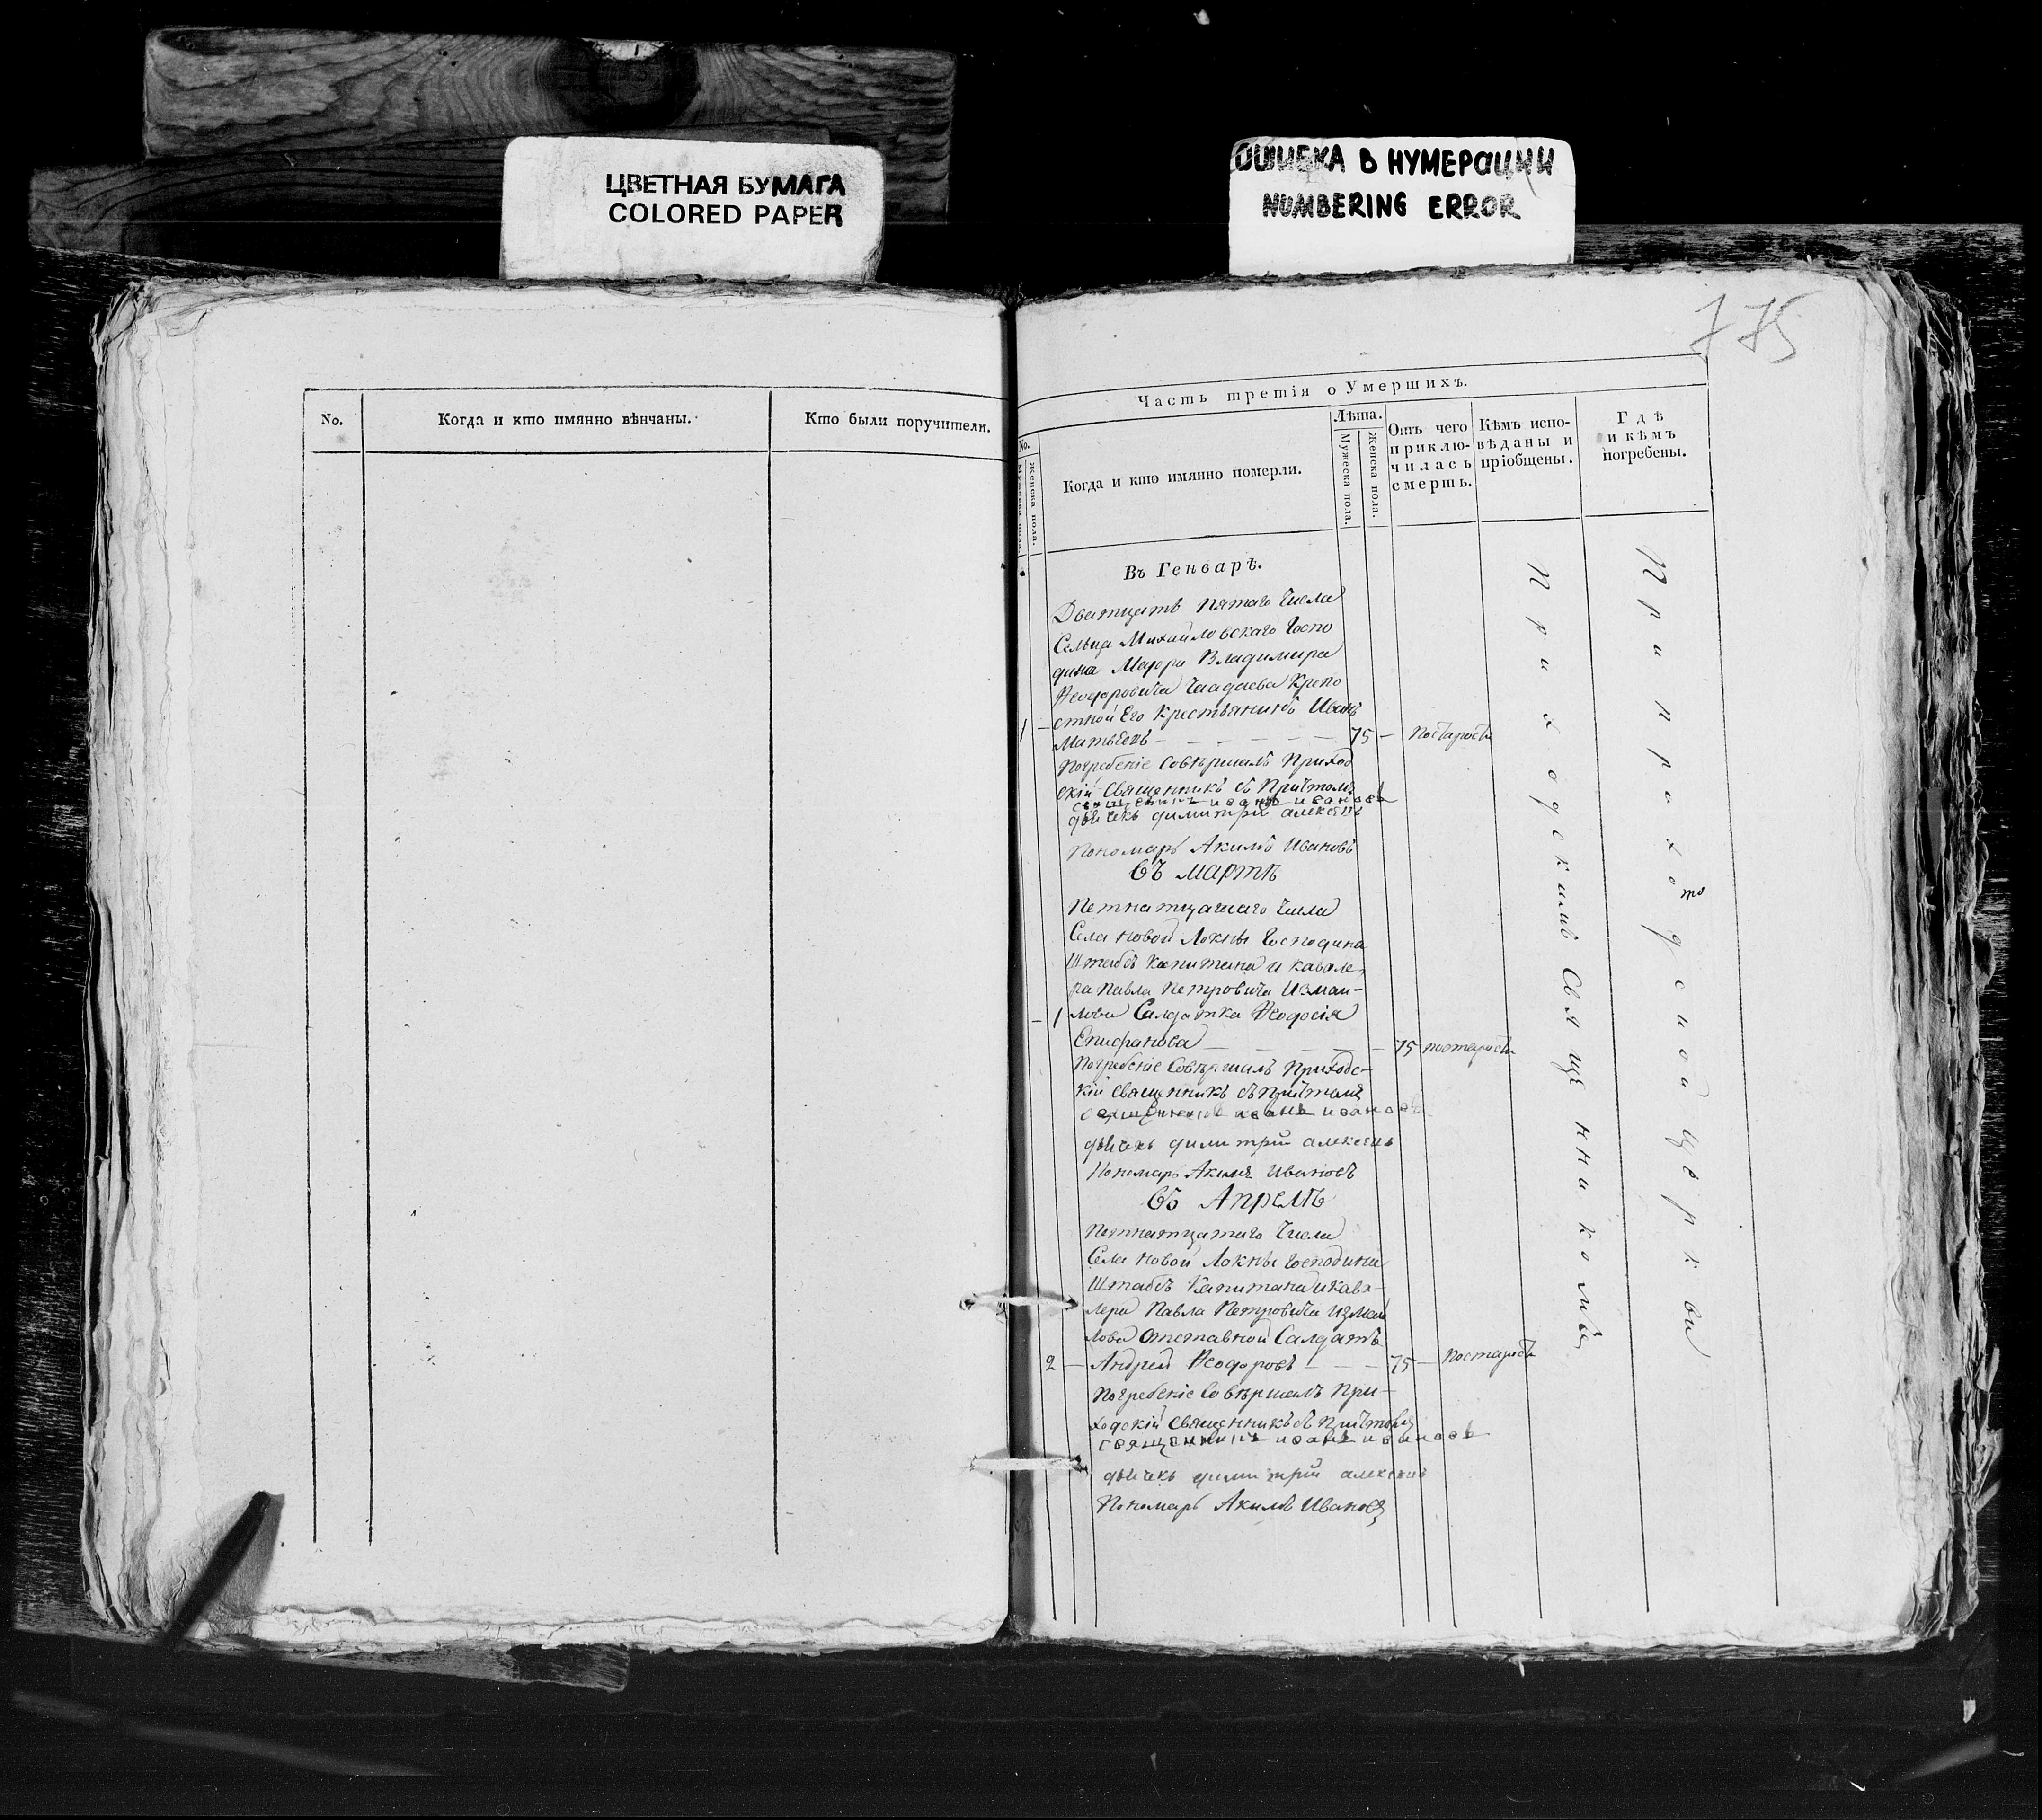 ЦВЕТНАЯ БУМАГА
COLORED PAPER
ОШИБКА В НУМЕРАЦИИ
NUMBERING ERROR
775
No.
Когда и кто имянно вѣнчаны.
Кто были поручители.
Часть третія о Умершихъ.
No.
Мужеска пола.
Женска пола.
Когда и кто имянно померли.
Лѣта.
Мужеска пола.
Женска пола.
Отъ чего
приклю-
чилась
смерть.
Кѣмъ испо-
вѣданы и
пріобщены.
Гдѣ
и кѣмъ
погребены.
Въ Генварѣ.
Дватцать пятаго Числа
Сельца Михайловскаго Госпо
дина Маіора Владимира
Ѳеодоровича Чаадаева Крепо
стной Его Крестьянинъ Иванъ
1 — Матвѣевъ — 75 — Постарости
Погребеніе Совѣршалъ Приход
скій Священникъ съ Причтомъ
священникъ иоаннъ ивановъ
дьячекъ димитрій алексѣевъ
Пономарь Акимъ Ивановъ
въ мартѣ
Петнатцатаго Числа
Села новой Локны Господина
Штабсъ Капитана и Кавале-
ра Павла Петровича Измаи-
— 1 лова Салдатка Ѳеодосія
Епифанова — 75 постарости
Погребеніе Совѣршалъ Приходс-
кій Священникъ съ Причтомъ
священникъ иоаннъ ивановъ
дьячекъ димитрій алексѣевъ
Пономарь Акимъ Ивановъ
въ Апрелѣ
Петнатцатаго Числа
Села новой Локны Господина
Штабсъ Капитана и Кава-
лера Павла Петровича Измаи
лова Отставной Салдатъ
2 — Андрей Ѳеодоровъ — 75 — Постарости
Погребеніе Совѣршалъ При-
ходскій Священникъ съ Причтомъ
священникъ иоаннъ ивановъ
дьячекъ димитрій алексѣевъ
Пономарь Акимъ Ивановъ
Приходскимъ Священникомъ
При приходской церкви